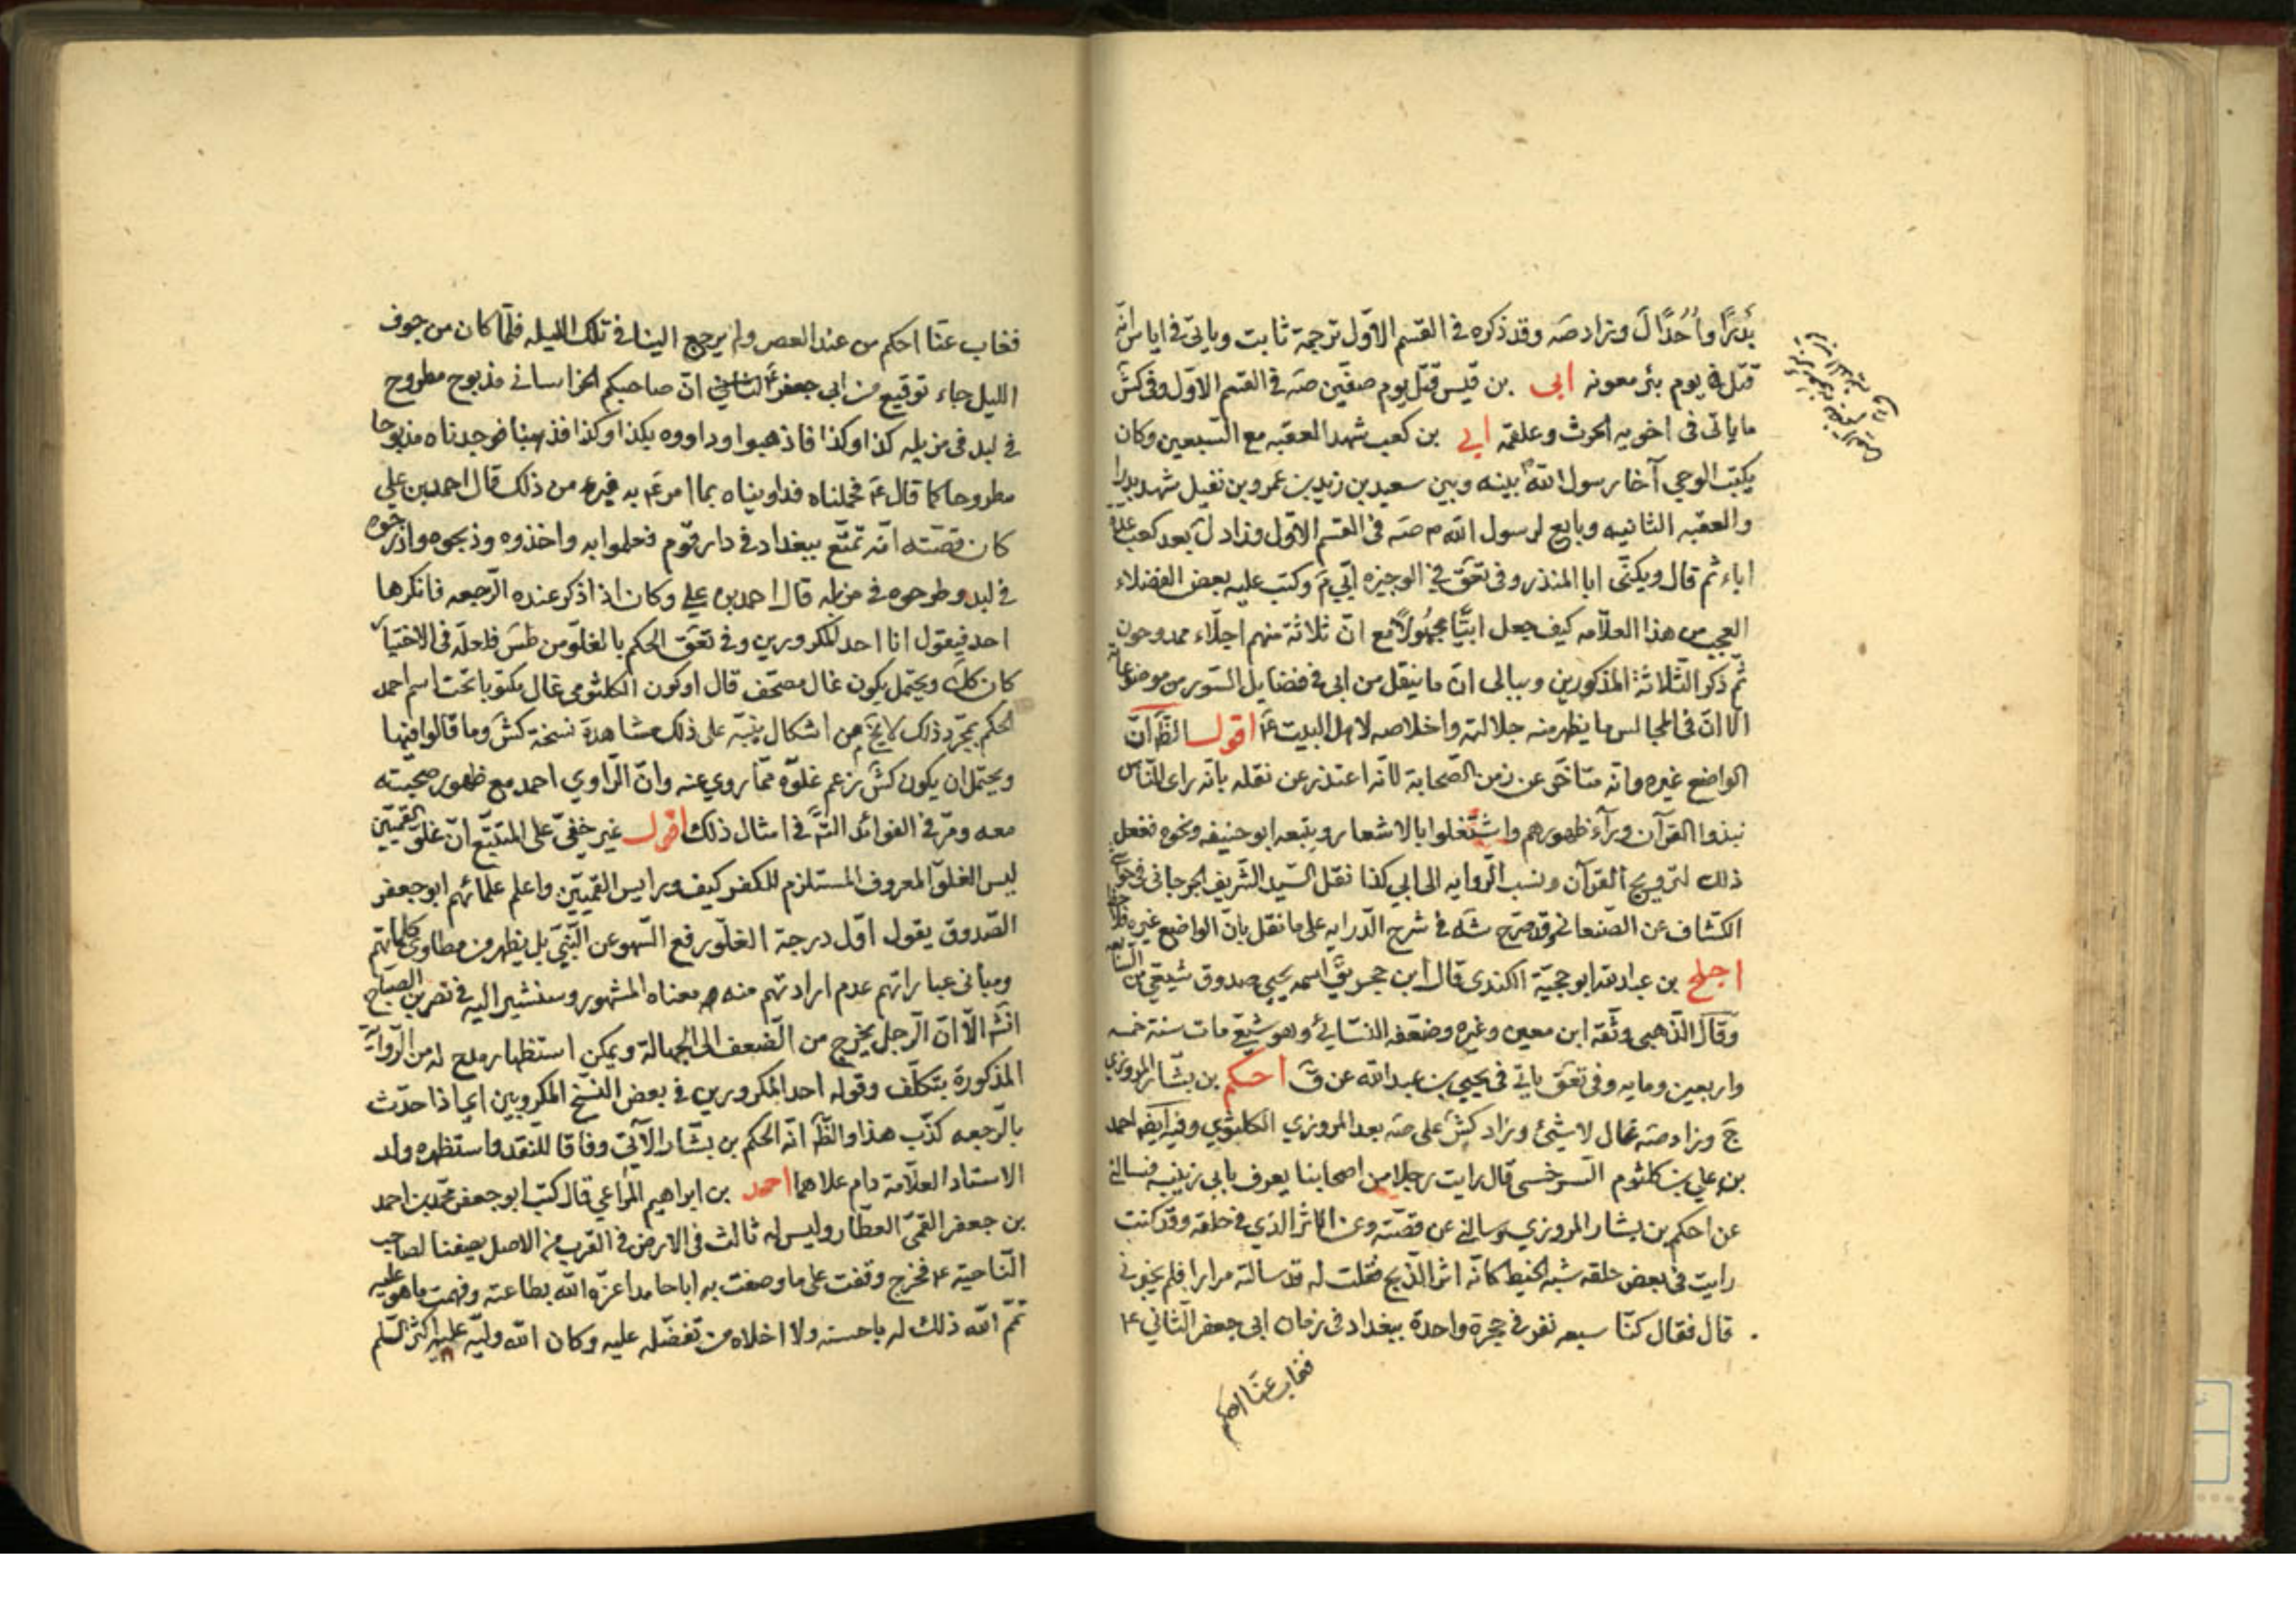 بَدْرًا واُحُدًا لَ وزاد صَه وقد ذكره فى القسم الاوّل ترجمة ثابت وياتى فى اياس انّه
قتل فى يوم بئر معونه ابى بن قيس قتل يوم صفّين صَه فى القسم الاوّل وفى كش
ماياتى فى اخويه الحرث وعلقمه ابي بن كعب شهد العقبه مع السّبعين وكان
يكتب الوحي آخا رسول الله ص بينه وبين سعيد بن زيد بن عمرو بن نفيل شهد بدرا
والعقبه الثانيه وبايع لرسول الله م صَه فى القسم الاوّل وزاد لَ بعد كعب عدة
اباء ثم قال ويكنّى ابا المنذر وفى تعَق فى الوجيزه ابّي مَ وكتب عليه بعض الفضلاء
العجب من هذا العلّامه كيف جعل ابيًّا مجهُولًا مع انّ ثلاثة منهم اجلّاء ممدوحون
ثمّ ذكر الثّلاثة المذكورين وببالى انّ ما ينقل من ابى فى فضايل السّور من موضوعاته
الّا انّ فى المجالس ما يظهر منه جلالته واخلاصه لاهل البيت ع اقول الظَ انّ
الواضع غيره وانّه متاخّر عن زمن الصّحابة لانّه اعتذر عن نقله بانّه راى النّاس
نبذوا القرآن وراء ظهورهم واشتغلوا بالاشعار وبتبعه ابو حنيفه ونحوه ففعل
ذلك لترويج القرآن ونسب الرّوايه الى ابي كذا نقل السّيد الشّريف الجرجانى فى حواشى
الكشّاف عن الصّنعانى وقد صرّح شَه فى شرح الدّرايه على ما نقل بانّ الواضع غيره
اجلح بن عبد الله ابو حجيّة الكندى قال ابن حجر يقَ اسمه يحيى صدوق شيعي من السّابعه
وقال الذّهبى وثّقه ابن معين وغيره وضعّفه النسّائيُ وهو شيعّى مات سنة خمسه
واربعين ومايه وفى تعَق ياتى فى يحيى بن عبد الله عن قَ احكم بن بشّار المروزي
جَ وزاد صَه غال لا شيئ وزاد كش على صَه بعد المروزي الكلثومي وفيه ايضا احمد
بن علي بن كلثوم السّرخسى قال رايت رجلا من اصحابنا يعرف بابى زينبه فسالنى
عن احكم بن بشار المروزي وسالنى عن قصّته وعن الاثر الذي فى حلقه وقد كنت
رايت فى بعض حلقه شبه الخيط كانّه اثر الذّبح فقلت له قد سالته مرارا فلم يخبرنى
قال فقال كنّا سبعه نفر فى حجرة واحدة ببغداد فى زمان ابى جعفر الثّاني ع
فغاب عنّا احكم
فغاب عنّا احكم من عند العصر ولم يرجع الينا فى تلك الليله فلمّا كان من جوف
الليل جاء توقيع من ابى جعفر ع انّ صاحبكم الخراسانى مذبوح مطروح
فى لبد فى مزبله كذا وكذا فاذهبوا وداووه بكذا وكذا فذهبنا فوجدناه مذبوحا
مطروحا كما قال ع فحملناه فداويناه بما امر ع به فبرء من ذلك قال احمد بن علي
كان قصّته انّه تمتّع ببغداد فى دار قوم فعلموا به واخذوه وذبحوه واذرجوه
فى لبد وطرحوه فى مزبله قال احمد بن علي وكان اذا ذكر عنده الرّجعه فانكرها
احد فيقول انا احد المكرورين وفى تعَق الحكم بالغلوّ من طس فلعلّه فى الاختيار
كان كك ويحتمل يكون غال مصحّف قال او كون الكلثومى غال مكتوبا تحت اسم احمد
الحكم بمجرّد ذلك لا يخ من اشكال ينبّه على ذلك مشاهدة نسخة كش وما قالوا فيها
ويحتمل ان يكون كش بزعم غلوّه ممّا روي عنه وانّ الرّاوي احمد مع ظهور صحبته
معه ومرّ فى الفوائد الثّ فى امثال ذلك اقول غير خفيّ على المتتبّع انّ غلوّ القميّين
ليس الغلوّ المعروف المستلزم للكفر كيف ورايس القميّين واعلم علمائهم ابو جعفر
الصّدوق يقول اوّل درجة الغلّو رفع السّهو عن النّبيّ بل يظهر من مطاوى كلماتهم
ومبانى عباراتهم عدم ارادتهم منه معناه المشهور وسنشير اليه فى نصر بن الصبّاح
انش الّا انّ الرّجل يخرج من الضّعف الى الجهالة ويمكن استظهار مدح له من الرّواية
المذكورة بتكلّف وقوله احد المكرورين فى بعض النّسخ المكروبين اي اذا حدّث
بالرّجعه كذّب هذا والظَ انّه الحكم بن بشّار الآتى وفاقا للنقد واستظهره ولد
الاستاد العلّامة دام علاهما احمد بن ابراهيم المراغي قال كتب ابو جعفر محمّد بن احمد
بن جعفر القمّى العطّار وليس له ثالث فى الارض فى القرب من الاصل يصفنا لصاحب
النّاحية ع فخرج وقفت على ما وصفت به ابا حامد اعزّه الله بطاعته وفهمت ما هو عليه
تمّم الله ذلك له باحسنه ولا اخلاه من تفضّله عليه وكان الله وليّه عليه اكثر السّلم